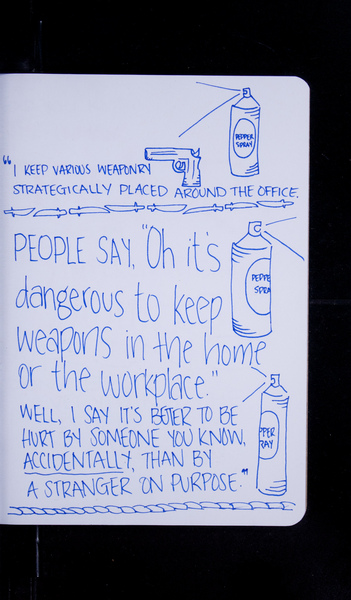 PEPPER
SPRAY
"I KEEP VARIOUS WEAPONRY
STRATEGICALLY PLACED AROUND THE OFFICE.
PEOPLE SAY, "Oh it's
dangerous to keep
weapons in the home
or the workplace."
PEPPE
SPRA
WELL, I SAY IT'S BETTER TO BE
HURT BY SOMEONE YOU KNOW,
ACCIDENTALLY, THAN BY
A STRANGER ON PURPOSE."
PPER
RAY